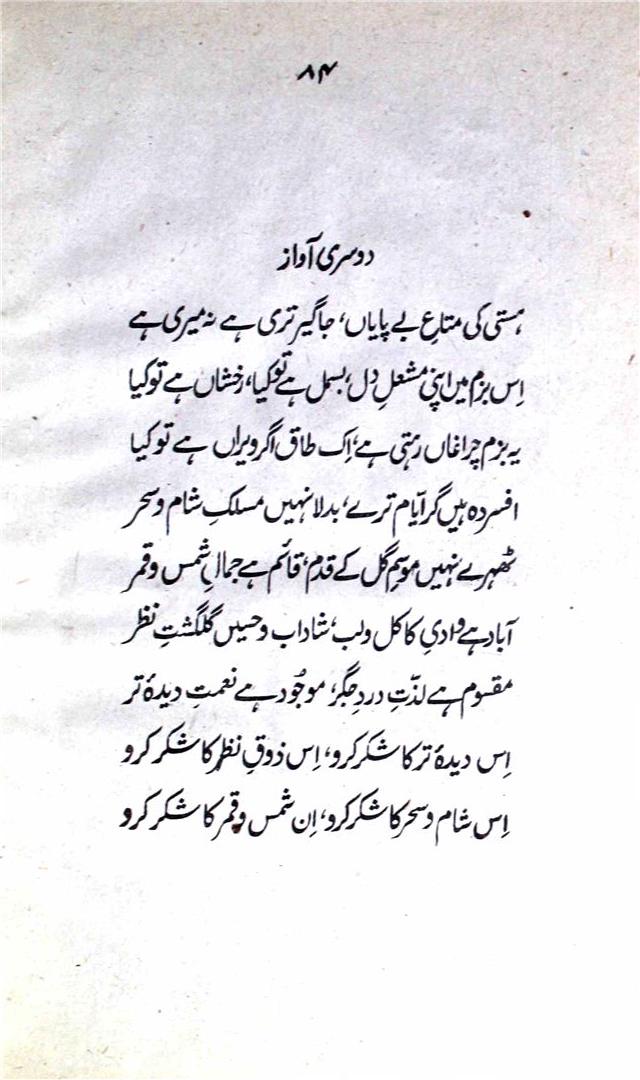 ۸۴
دوسری آواز
ہستی کی متاعِ بے پایاں، جاگیر تری ہے نہ میری ہے
اِس بزم میں اپنی مشعلِ دل، بسمل ہے تو کیا، رخشاں ہے تو کیا
یہ بزم چراغاں رہتی ہے، اِک طاق اگر ویراں ہے تو کیا
افسردہ ہیں گر ایّام ترے، بدلا نہیں مسلکِ شام و سحر
ٹھہرے نہیں موسمِ گل کے قدم، قائم ہے جمالِ شمس و قمر
آباد ہے وادیِ کاکل و لب، شاداب و حسیں گلگشتِ نظر
مقسوم ہے لذّتِ دردِ جگر، موجُود ہے نعمتِ دیدۂ تر
اِس دیدۂ تر کا شکر کرو، اِس ذوقِ نظر کا شکر کرو
اِس شام و سحر کا شکر کرو، اِن شمس و قمر کا شکر کرو